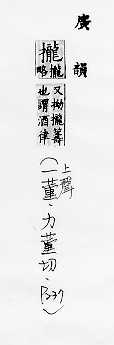 廣韻
攏
攏略
又拗攏籌
也謂酒律
(上聲
一董‧力董切‧P.237)